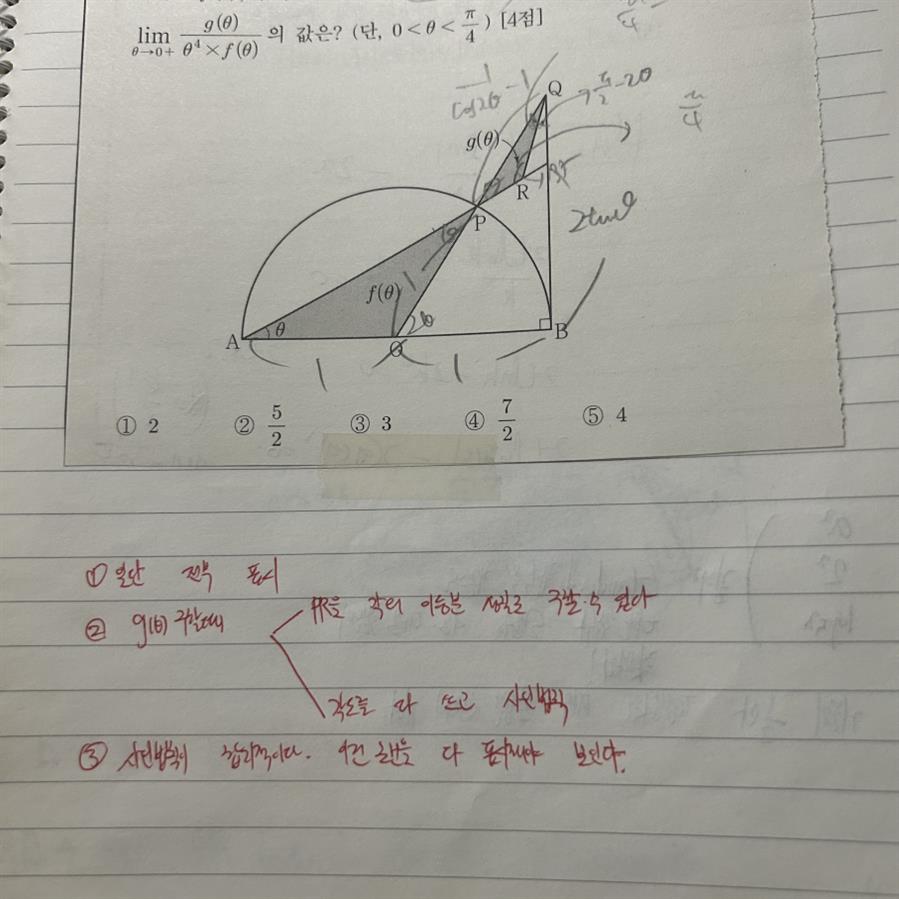 lim θ→0+ g(θ) / θ⁴ × f(θ) 의 값은? (단, 0 < θ < π/4) [4점]
1/cos2θ - 1
Q
π/2 - 2θ
π/4
g(θ)
R
2tanθ
P
f(θ)
1
A
θ
O
2θ
B
1
1
① 2 ② 5/2 ③ 3 ④ 7/2 ⑤ 4
① 일단 전부 표시
② g(θ) 구할때
PR을 각의 이등분 성질로 구할 수 있다
각도를 다 쓰고 사인법칙
③ 사인법칙이 합리적이다. 다 보인다.